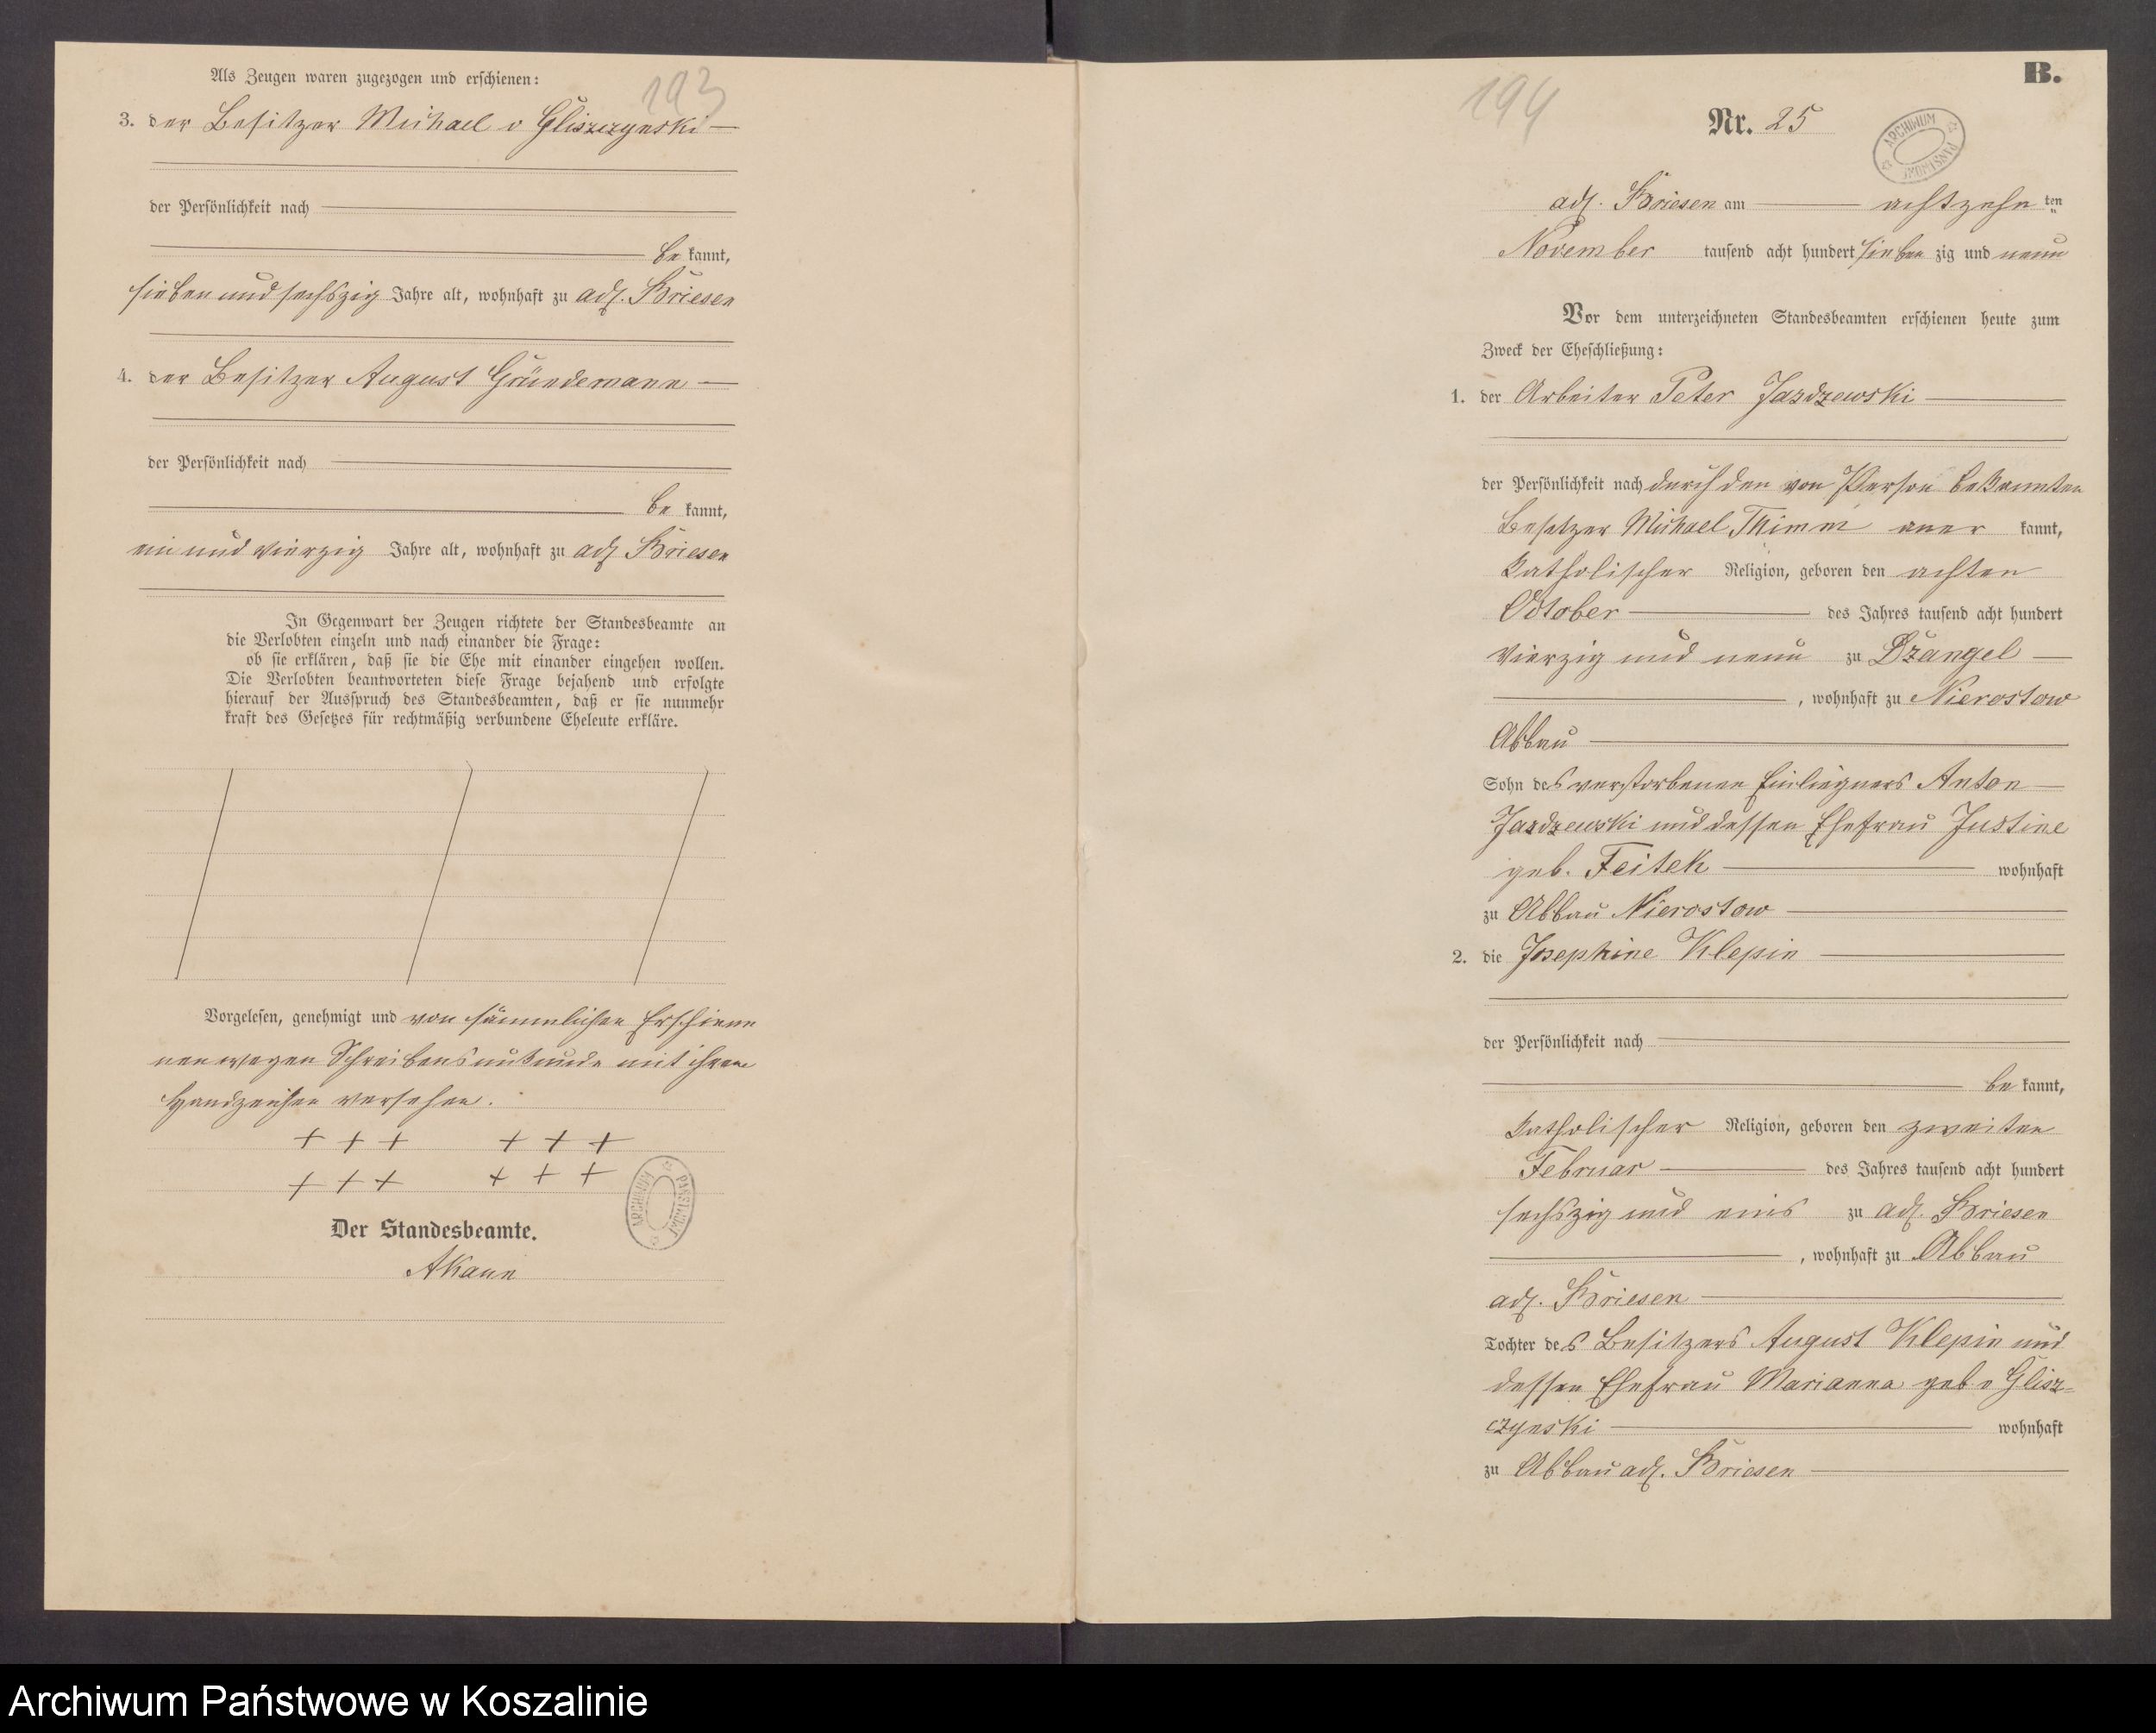 193
Als Zeugen waren zugezogen und erschienen:
3. der Besitzer Michael v Gliszczynski
der Persönlichkeit nach
be kannt,
sieben und sechszig Jahre alt, wohnhaft zu adl. Briesen
4. der Besitzer August Gründemann
der Persönlichkeit nach
be kannt,
ein und vierzig Jahre alt, wohnhaft zu adl Briesen
In Gegenwart der Zeugen richtete der Standesbeamte an
die Verlobten einzeln und nach einander die Frage:
ob sie erklären, daß sie die Ehe mit einander eingehen wollen.
Die Verlobten beantworteten diese Frage bejahend und erfolgte
hierauf der Ausspruch des Standesbeamten, daß er sie nunmehr
kraft des Gesetzes für rechtmäßig verbundene Eheleute erkläre.
Vorgelesen, genehmigt und von sämmlichen Erschiene
nen wegen Schreibensunkunde mit ihren
Handzeichen versehen.
+ + + + + +
+ + + + + +
ARCHIWUM PAŃSTWOWE
Der Standesbeamte.
AKann
B.
194
Nr. 25
ARCHIWUM PAŃSTWOWE
adl. Briesen am achtzehn ten
November tausend acht hundert sieben zig und neun
Vor dem unterzeichneten Standesbeamten erschienen heute zum
Zweck der Eheschließung:
1. der Arbeiter Peter Jazdzewski
der Persönlichkeit nach durch den von Person bekannten
Besitzer Michael Thimm aner kannt,
katholischer Religion, geboren den achten
October des Jahres tausend acht hundert
vierzig und neun zu Dzangel
, wohnhaft zu Nierostow
Abbau
Sohn des verstorbenen Einliegners Anton
Jazdzewski und dessen Ehefrau Justine
geb. Feitek wohnhaft
zu Abbau Nierostow
2. die Josephine Klepin
der Persönlichkeit nach
be kannt,
katholischer Religion, geboren den zweiten
Februar des Jahres tausend acht hundert
sechszig und eins zu adl. Briesen
, wohnhaft zu Abbau
adl. Briesen
Tochter des Besitzers August Klepin und
dessen Ehefrau Marianna geb v Glisz-
czynski wohnhaft
zu Abbau adl. Briesen
Archiwum Państwowe w Koszalinie